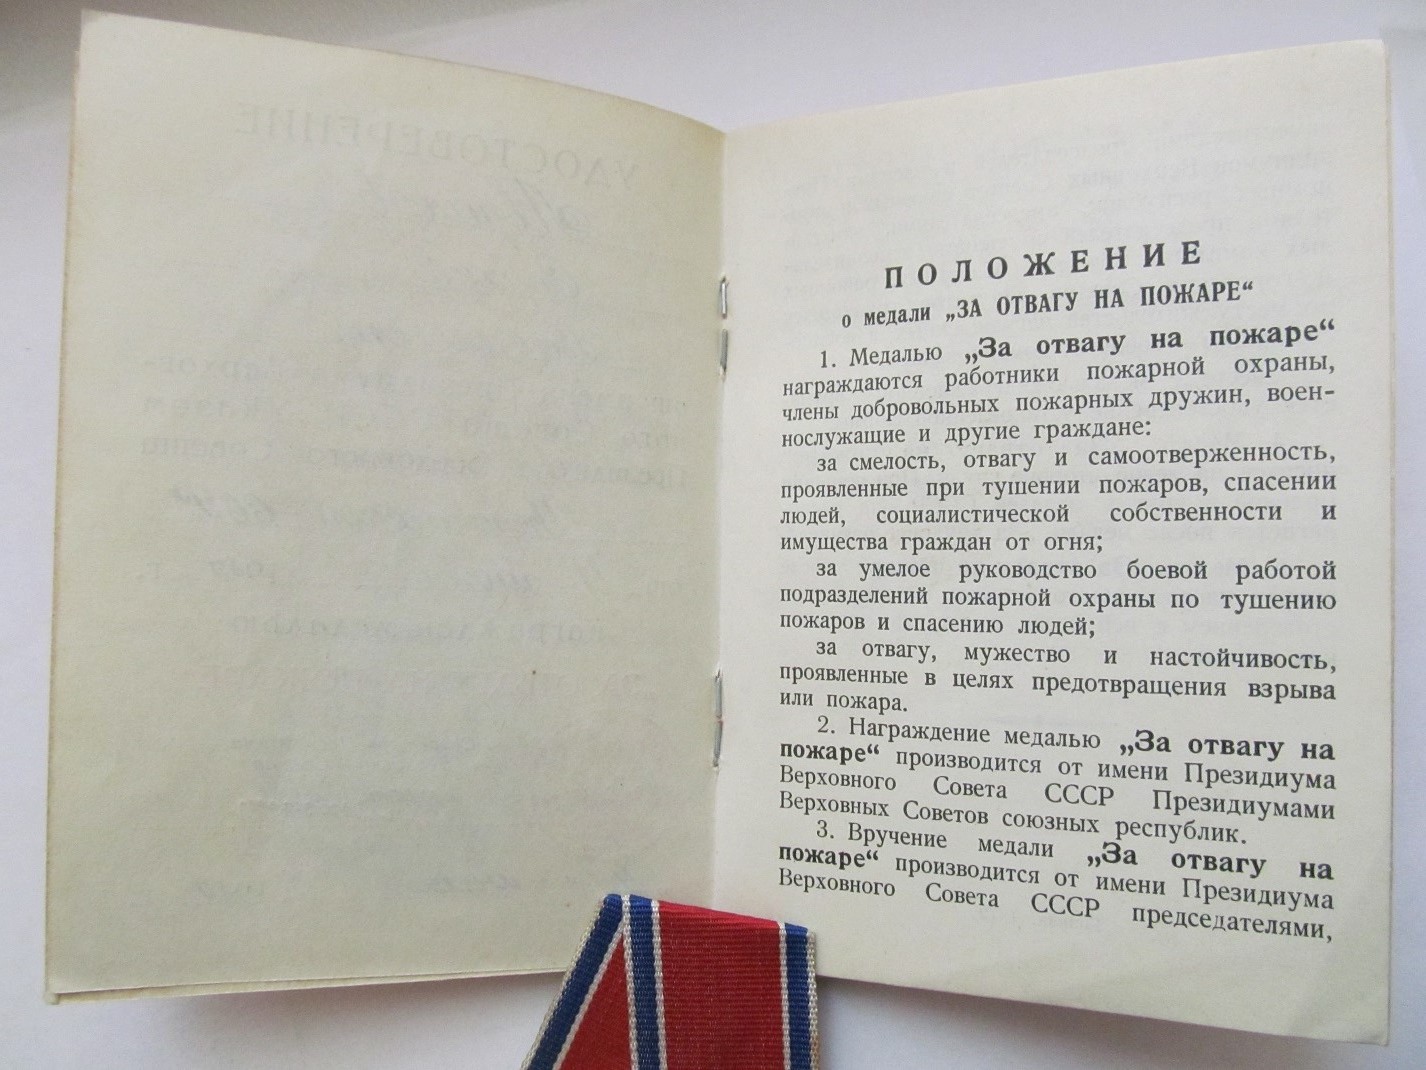 УДОСТОВЕРЕНИЕ
ПОЛОЖЕНИЕ
о медали „ЗА ОТВАГУ НА ПОЖАРЕ“
1. Медалью „За отвагу на пожаре“
награждаются работники пожарной охраны,
члены добровольных пожарных дружин, воен-
нослужащие и другие граждане:
за смелость, отвагу и самоотверженность,
проявленные при тушении пожаров, спасении
людей, социалистической собственности и
имущества граждан от огня;
за умелое руководство боевой работой
подразделений пожарной охраны по тушению
пожаров и спасению людей;
за отвагу, мужество и настойчивость,
проявленные в целях предотвращения взрыва
или пожара.
2. Награждение медалью „За отвагу на
пожаре“ производится от имени Президиума
Верховного Совета СССР Президиумами
Верховных Советов союзных республик.
3. Вручение медали „За отвагу на
пожаре“ производится от имени Президиума
Верховного Совета СССР председателями,